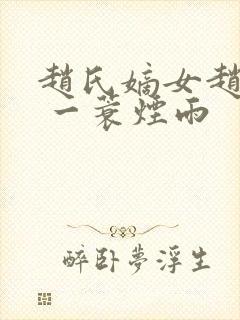 趙氏嫡女趙
一蓑煙雨
醉卧夢浮生